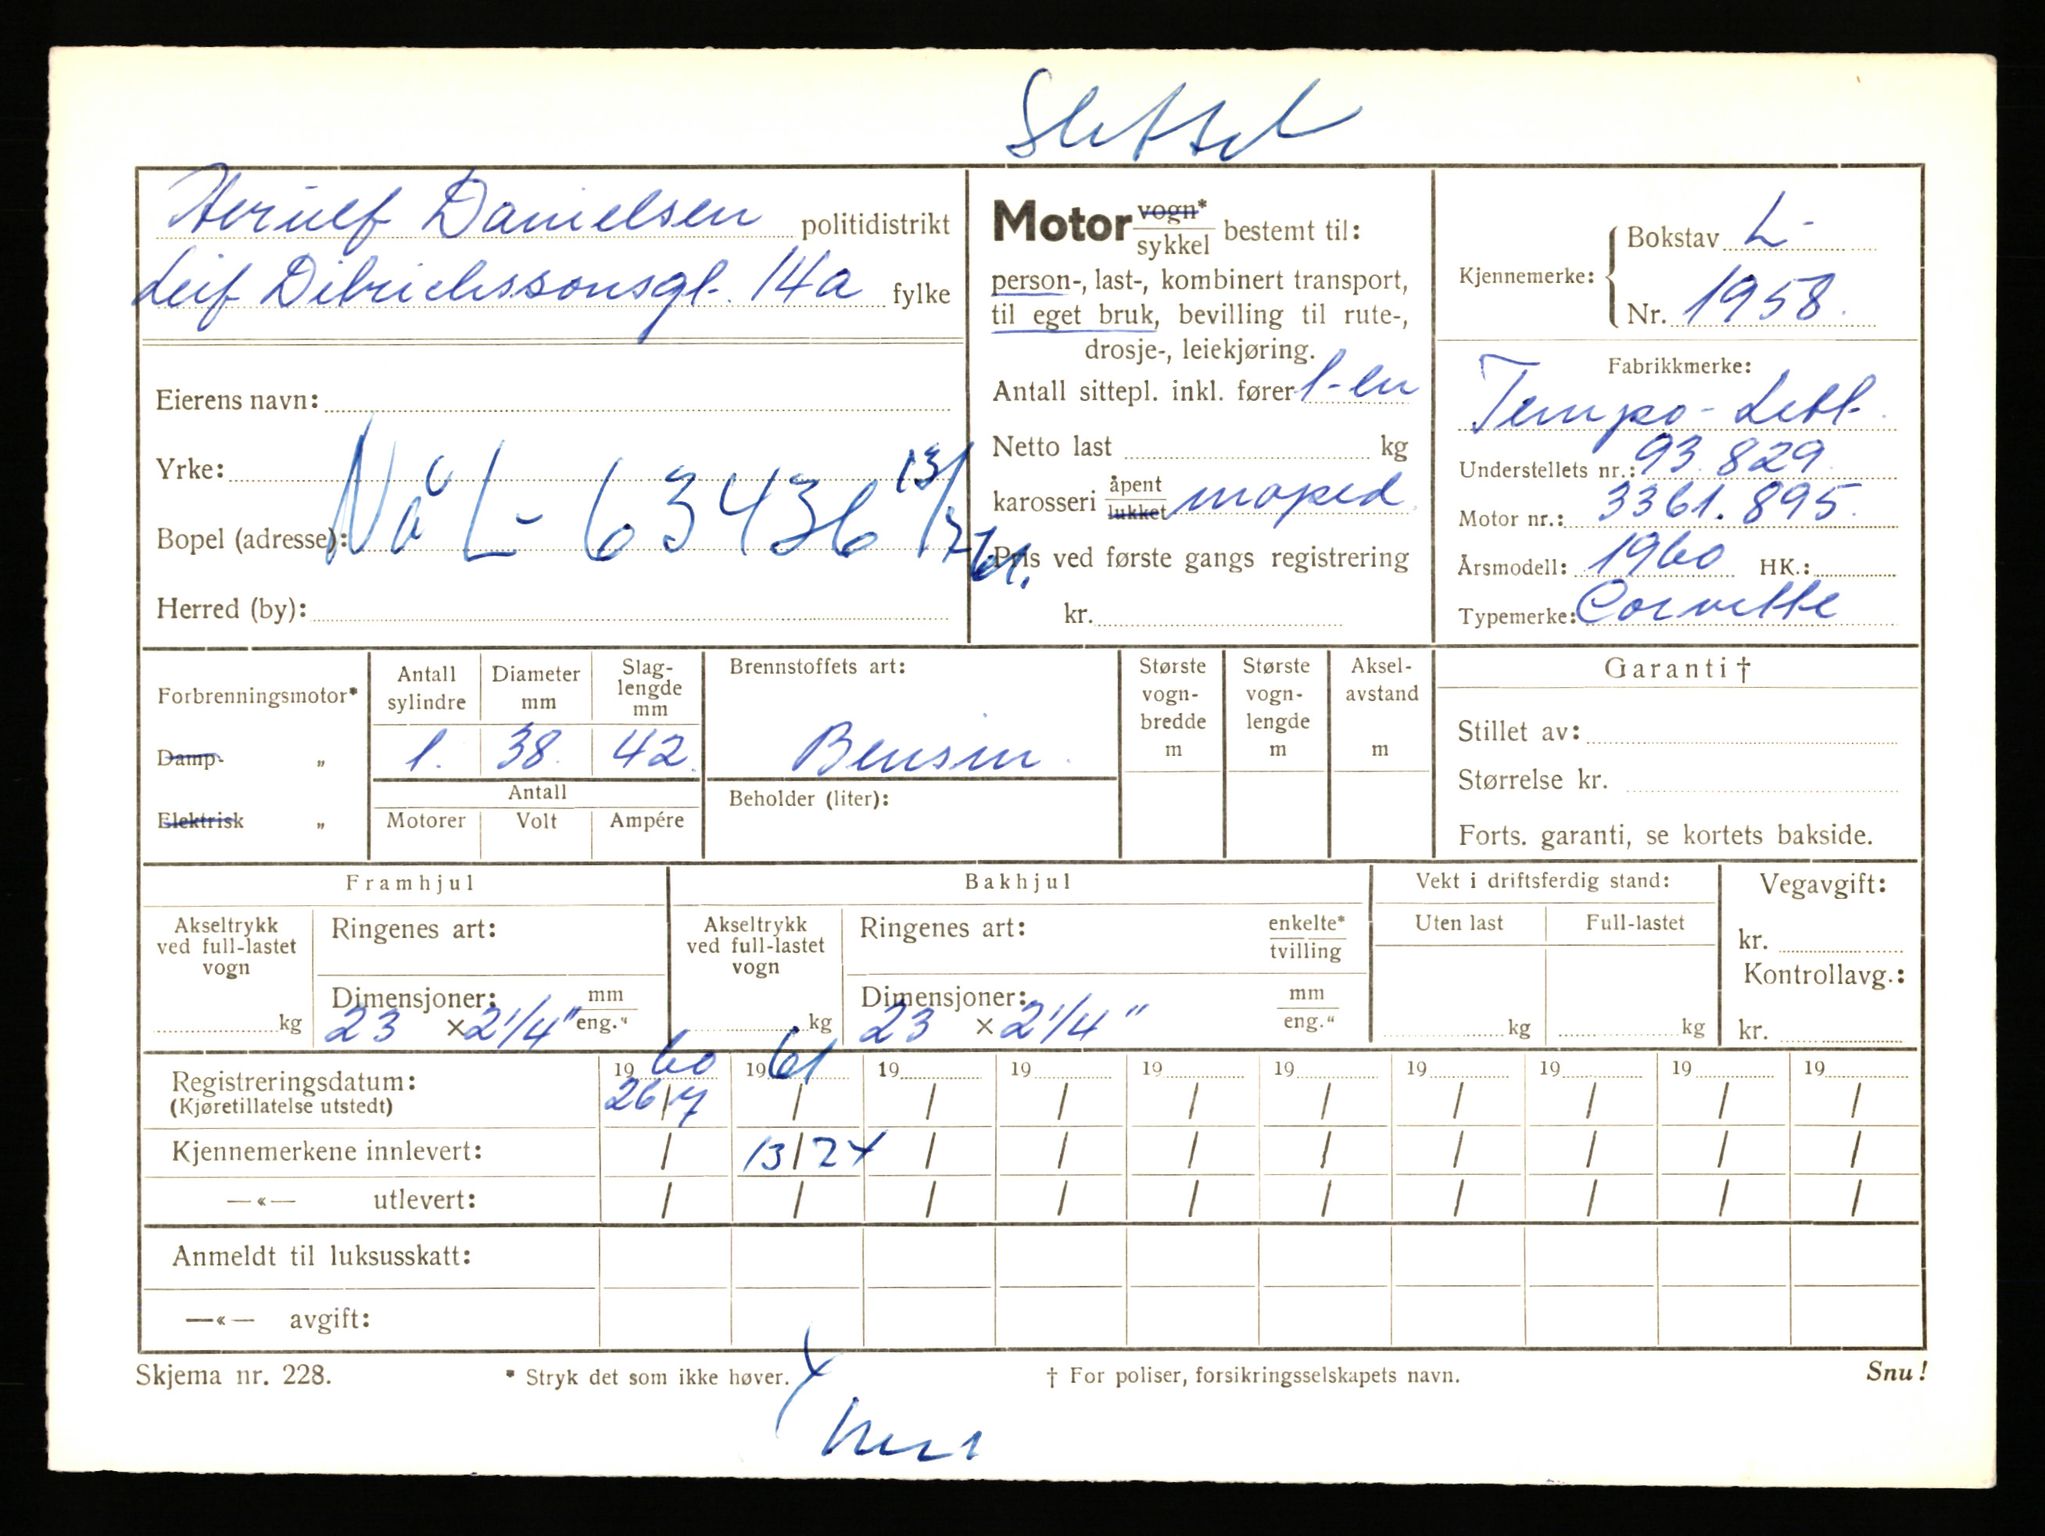 Slettet
Danielsen politidistrikt
Leif 14a fylke
Eierens navn:
Yrke:
Bopel (adresse):
Herred (by):
Nå L- 63436 13/2 61.
Motor vogn* sykkel bestemt til:
person-, last-, kombinert transport,
til eget bruk, bevilling til rute-,
drosje-, leiekjøring.
Antall sittepl. inkl. fører 1-en
Netto last kg
karosseri åpent lukket moped
Pris ved første gangs registrering
kr.
Kjennemerke: Bokstav L-
Nr. 1958.
Fabrikkmerke:
Tempo-
Understellets nr.: 93.829.
Motor nr.: 3361.895.
Årsmodell: 1960 HK.:
Typemerke: Corvette
Forbrenningsmotor*
Damp- "
Elektrisk "
Antall sylindre Diameter mm Slag-lengde mm
1. 38. 42.
Antall
Motorer Volt Ampére
Brennstoffets art:
Bensin.
Beholder (liter):
Største vogn-bredde m
Største vogn-lengde m
Aksel-avstand m
Garanti †
Stillet av:
Størrelse kr.
Forts. garanti, se kortets bakside.
Framhjul
Akseltrykk ved full-lastet vogn
kg
Ringenes art:
Dimensjoner: mm eng."
23 x 2 1/4"
Bakhjul
Akseltrykk ved full-lastet vogn
kg
Ringenes art: enkelte* tvilling
Dimensjoner: mm eng."
23 x 2 1/4"
Vekt i driftsferdig stand:
Uten last Full-lastet
kg kg
Vegavgift:
kr.
Kontrollavg.:
kr.
Registreringsdatum: 19 60 19 61 19 19 19 19 19 19 19 19
(Kjøretillatelse utstedt) 26/7 / / / / / / / / /
Kjennemerkene innlevert: / 13/2 x / / / / / / / /
—«— utlevert: / / / / / / / / / /
Anmeldt til luksusskatt:
—«— avgift:
Skjema nr. 228. * Stryk det som ikke høver. † For poliser, forsikringsselskapets navn. Snu!
x